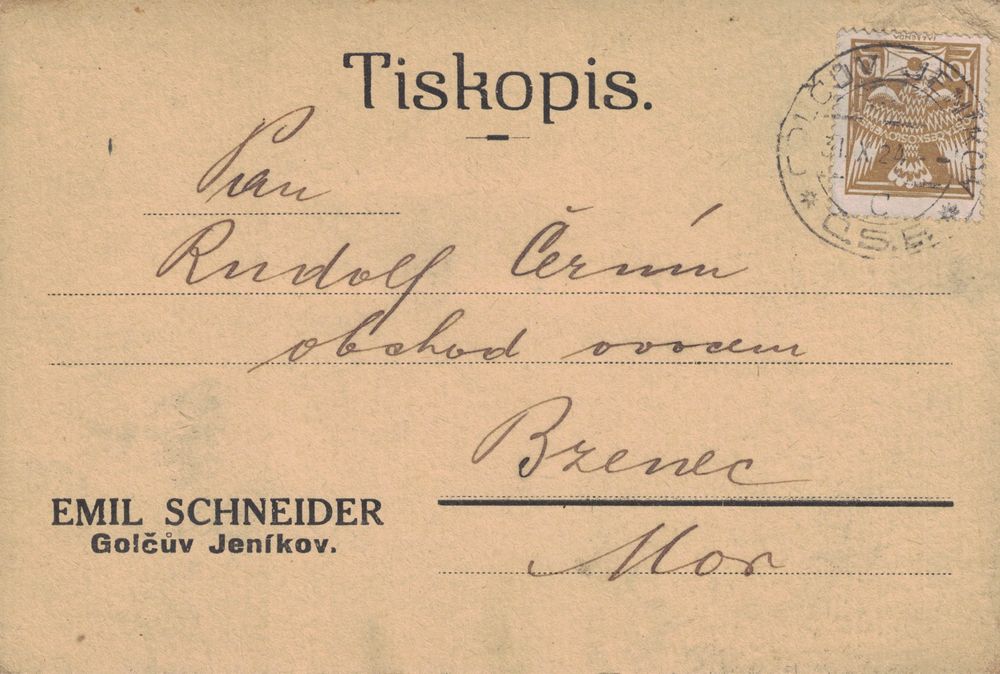 Tiskopis.
Pan
Rudolf Černín
obchod ovocem
Bzenec
Mor
EMIL SCHNEIDER
Golčův Jeníkov.
GOLČŮV JENÍKOV
Č.S.R.